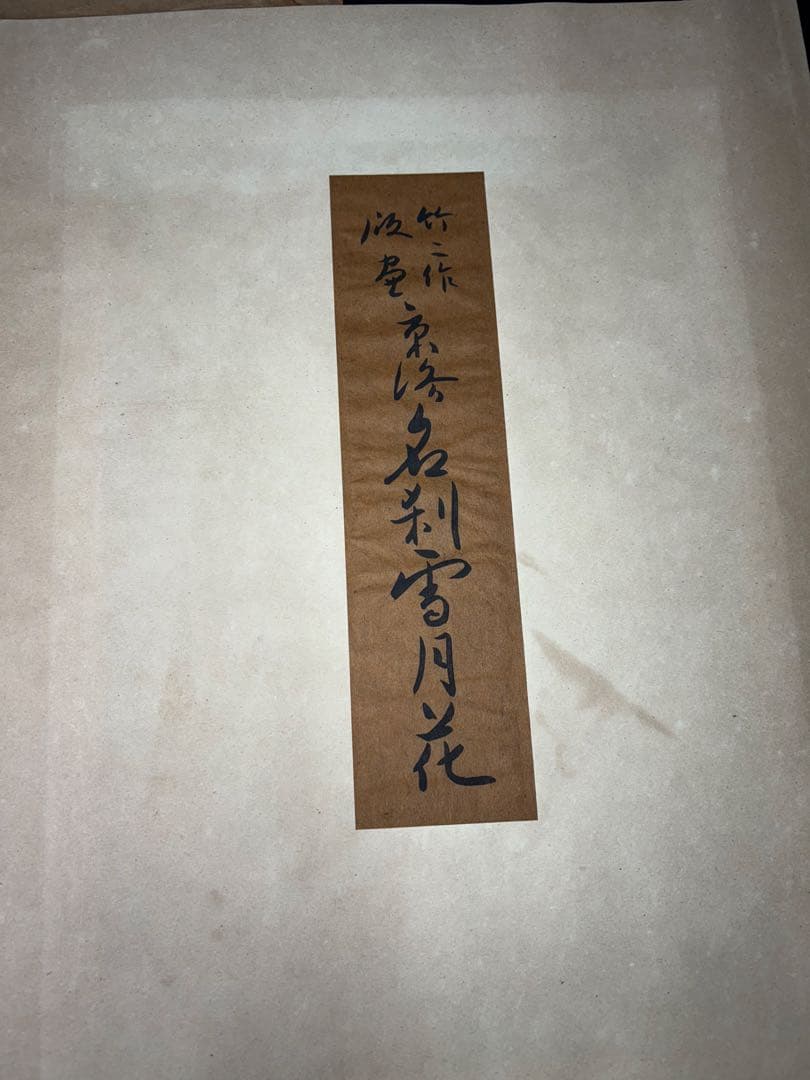 竹二作
版画
京洛名刹雪月花